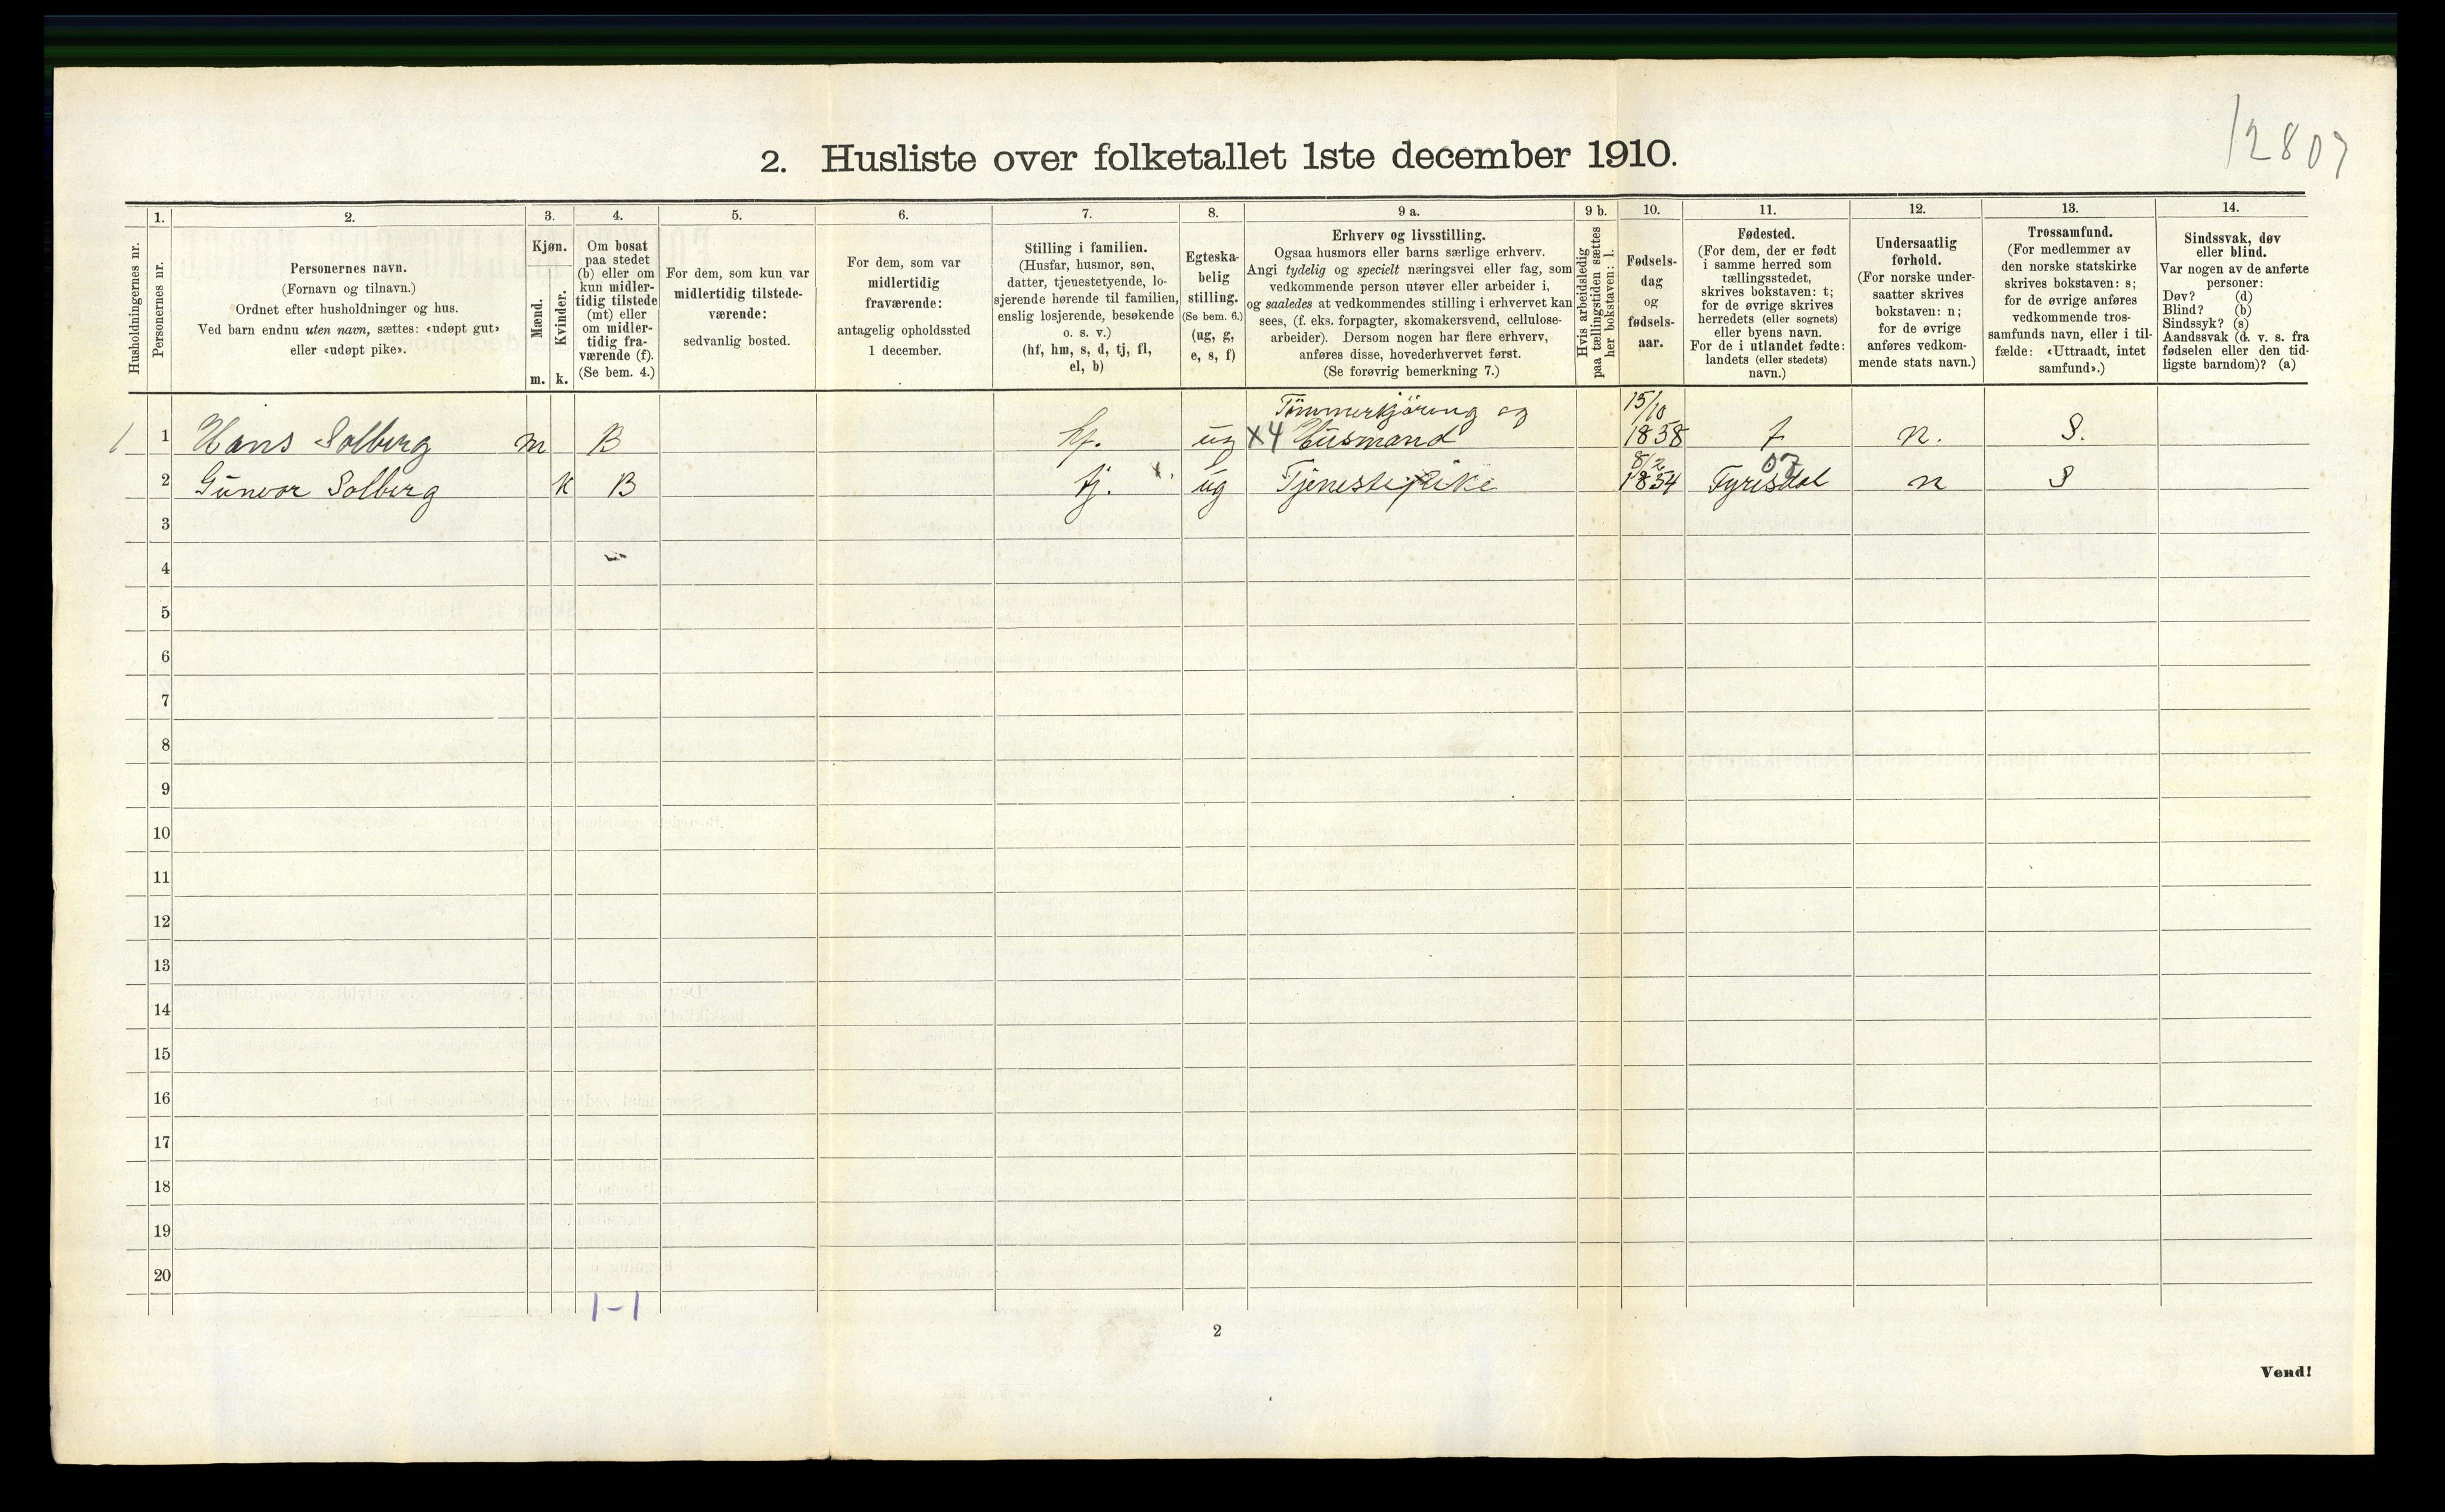 12807
2. Husliste over folketallet 1ste december 1910.
Husholdningernes nr.
1.
Personernes nr.
2.
Personernes navn.
(Fornavn og tilnavn.)
Ordnet efter husholdninger og hus.
Ved barn endnu uten navn, sættes: «udøpt gut»
eller «udøpt pike».
3.
Kjøn.
Mænd.
Kvinder.
m. k.
4.
Om bosat
paa stedet
(b) eller om
kun midler-
tidig tilstede
(mt) eller
om midler-
tidig fra-
værende (f).
(Se bem. 4.)
5.
For dem, som kun var
midlertidig tilstede-
værende:
sedvanlig bosted.
6.
For dem, som var
midlertidig
fraværende:
antagelig opholdssted
1 december.
7.
Stilling i familien.
(Husfar, husmor, søn,
datter, tjenestetyende, lo-
sjerende hørende til familien,
enslig losjerende, besøkende
o. s. v.)
(hf, hm, s, d, tj, fl,
el, b)
8.
Egteska-
belig
stilling.
(Se bem. 6.)
(ug, g,
e, s, f)
9 a.
Erhverv og livsstilling.
Ogsaa husmors eller barns særlige erhverv.
Angi tydelig og specielt næringsvei eller fag, som
vedkommende person utøver eller arbeider i,
og saaledes at vedkommendes stilling i erhvervet kan
sees, (f. eks. forpagter, skomakersvend, cellulose-
arbeider). Dersom nogen har flere erhverv,
anføres disse, hovederhvervet først.
(Se forøvrig bemerkning 7.)
9 b.
Hvis arbeidsledig
paa tællingstiden sættes
her bokstaven: l.
10.
Fødsels-
dag
og
fødsels-
aar.
11.
Fødested.
(For dem, der er født
i samme herred som
tællingsstedet,
skrives bokstaven: t;
for de øvrige skrives
herredets (eller sognets)
eller byens navn.
For de i utlandet fødte:
landets (eller stedets)
navn.)
12.
Undersaatlig
forhold.
(For norske under-
saatter skrives
bokstaven: n;
for de øvrige
anføres vedkom-
mende stats navn.)
13.
Trossamfund.
(For medlemmer av
den norske statskirke
skrives bokstaven: s;
for de øvrige anføres
vedkommende tros-
samfunds navn, eller i til-
fælde: «Uttraadt, intet
samfund».)
14.
Sindssvak, døv
eller blind.
Var nogen av de anførte
personer:
Døv? (d)
Blind? (b)
Sindssyk? (s)
Aandssvak (d. v. s. fra
fødselen eller den tid-
ligste barndom)? (a)
Tømmerkjøring og 15/10
1 1 Hans Solberg m B hf. ug X4 Husmand 1838 t n. S.
8/2 07
2 Gunvor Solberg k B tj. ug Tjenestepike 1854 Fyrisdal n S
3
4
5
6
7
8
9
10
11
12
13
14
15
16
17
18
19
20
1-1
2
Vend!